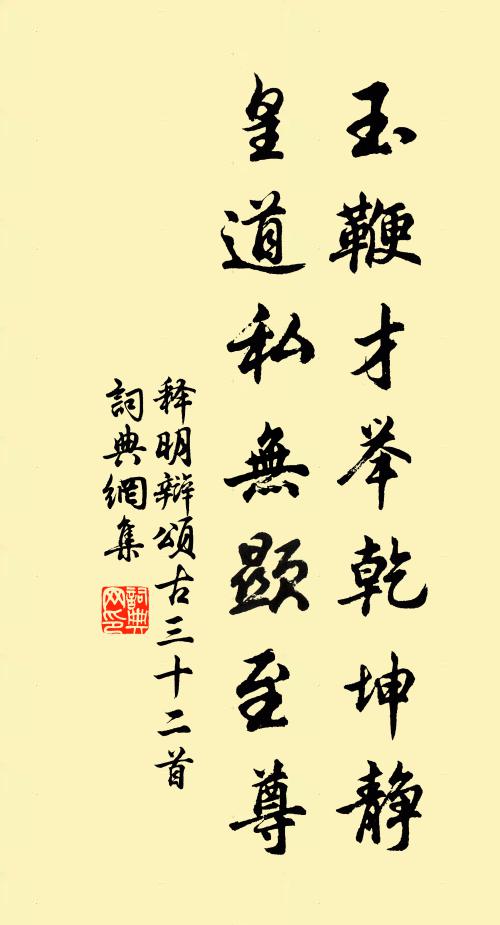 玉鞭才举乾坤静
皇道私無顯至尊
释明辩頌古三十二首
詞典網集
詞典网印